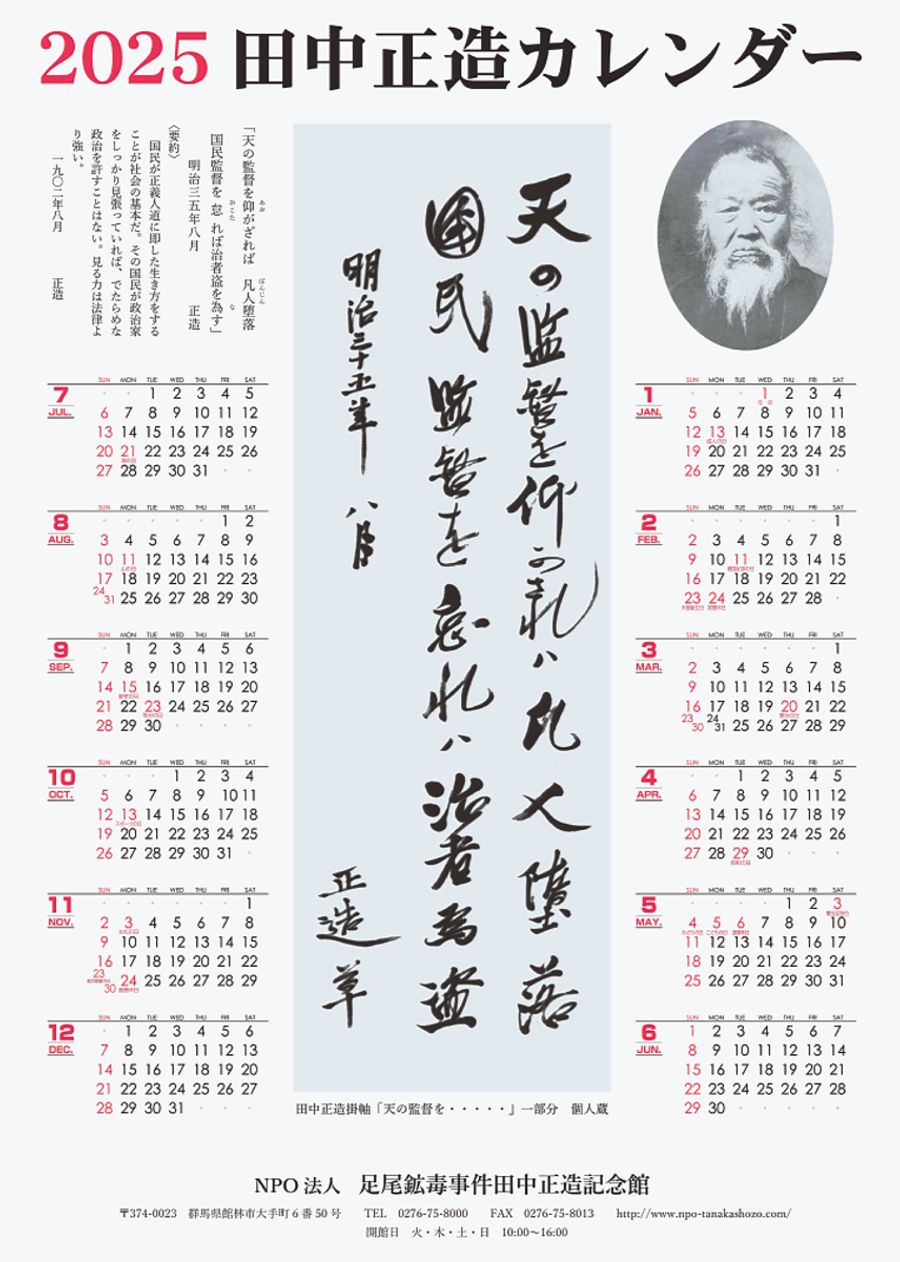 2025 田中正造カレンダー
「天の監督を仰がざれば　凡人堕落
国民監督を怠れば治者盗を為す」
明治三五年八月　正造
〈要約〉
国民が正義人道に即した生き方をする
ことが社会の基本だ。その国民が政治家
をしっかり見張っていれば、でたらめな
政治を許すことはない。見る力は法律よ
り強い。
一九〇二年八月　正造
天の監督を仰かされハ凡人堕落
国民監督を怠れハ治者為盗
明治三十五年八月
正造草
1 JAN.
SUN MON TUE WED THU FRI SAT
1 2 3 4
元日
5 6 7 8 9 10 11
12 13 14 15 16 17 18
成人の日
19 20 21 22 23 24 25
26 27 28 29 30 31
2 FEB.
SUN MON TUE WED THU FRI SAT
1
2 3 4 5 6 7 8
9 10 11 12 13 14 15
建国記念の日
16 17 18 19 20 21 22
23 24 25 26 27 28
天皇誕生日 振替休日
3 MAR.
SUN MON TUE WED THU FRI SAT
1
2 3 4 5 6 7 8
9 10 11 12 13 14 15
16 17 18 19 20 21 22
春分の日
23 30 24 31 25 26 27 28 29
4 APR.
SUN MON TUE WED THU FRI SAT
1 2 3 4 5
6 7 8 9 10 11 12
13 14 15 16 17 18 19
20 21 22 23 24 25 26
27 28 29 30
昭和の日
5 MAY.
SUN MON TUE WED THU FRI SAT
1 2 3
憲法記念日
4 5 6 7 8 9 10
みどりの日 こどもの日 振替休日
11 12 13 14 15 16 17
18 19 20 21 22 23 24
25 26 27 28 29 30 31
6 JUN.
SUN MON TUE WED THU FRI SAT
1 2 3 4 5 6 7
8 9 10 11 12 13 14
15 16 17 18 19 20 21
22 23 24 25 26 27 28
29 30
7 JUL.
SUN MON TUE WED THU FRI SAT
1 2 3 4 5
6 7 8 9 10 11 12
13 14 15 16 17 18 19
20 21 22 23 24 25 26
海の日
27 28 29 30 31
8 AUG.
SUN MON TUE WED THU FRI SAT
1 2
3 4 5 6 7 8 9
10 11 12 13 14 15 16
山の日
17 18 19 20 21 22 23
24 31 25 26 27 28 29 30
9 SEP.
SUN MON TUE WED THU FRI SAT
1 2 3 4 5 6
7 8 9 10 11 12 13
14 15 16 17 18 19 20
敬老の日
21 22 23 24 25 26 27
秋分の日
28 29 30
10 OCT.
SUN MON TUE WED THU FRI SAT
1 2 3 4
5 6 7 8 9 10 11
12 13 14 15 16 17 18
スポーツの日
19 20 21 22 23 24 25
26 27 28 29 30 31
11 NOV.
SUN MON TUE WED THU FRI SAT
1
2 3 4 5 6 7 8
文化の日
9 10 11 12 13 14 15
16 17 18 19 20 21 22
23 30 24 25 26 27 28 29
勤労感謝の日 振替休日
12 DEC.
SUN MON TUE WED THU FRI SAT
1 2 3 4 5 6
7 8 9 10 11 12 13
14 15 16 17 18 19 20
21 22 23 24 25 26 27
28 29 30 31
田中正造掛軸「天の監督を・・・・・」一部分　個人蔵
NPO法人　足尾鉱毒事件田中正造記念館
〒374-0023　群馬県館林市大手町6番50号　TEL　0276-75-8000　FAX　0276-75-8013　http://www.npo-tanakashozo.com/
開館日　火・木・土・日　10:00〜16:00